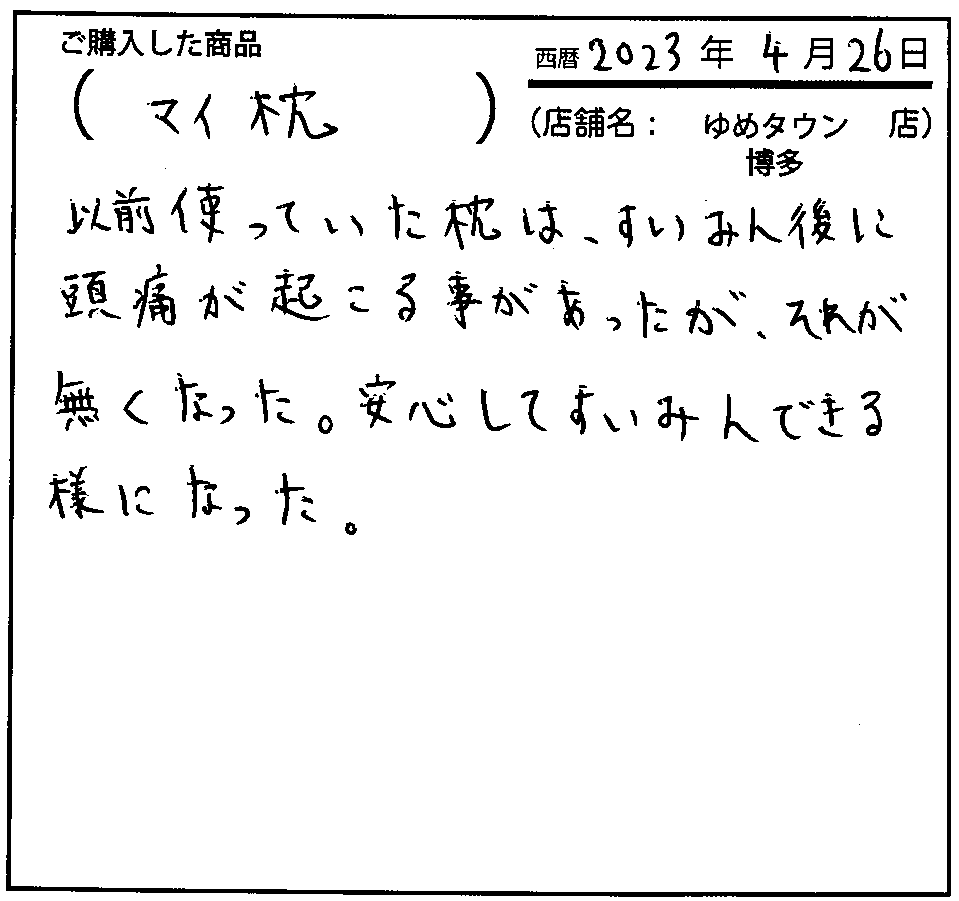 ご購入した商品
西暦 2023 年 4 月 26 日
( マイ枕 )
(店舗名： ゆめタウン 店)
博多
以前使っていた枕は、すいみん後に
頭痛が起こる事があったが、それが
無くなった。安心してすいみんできる
様になった。